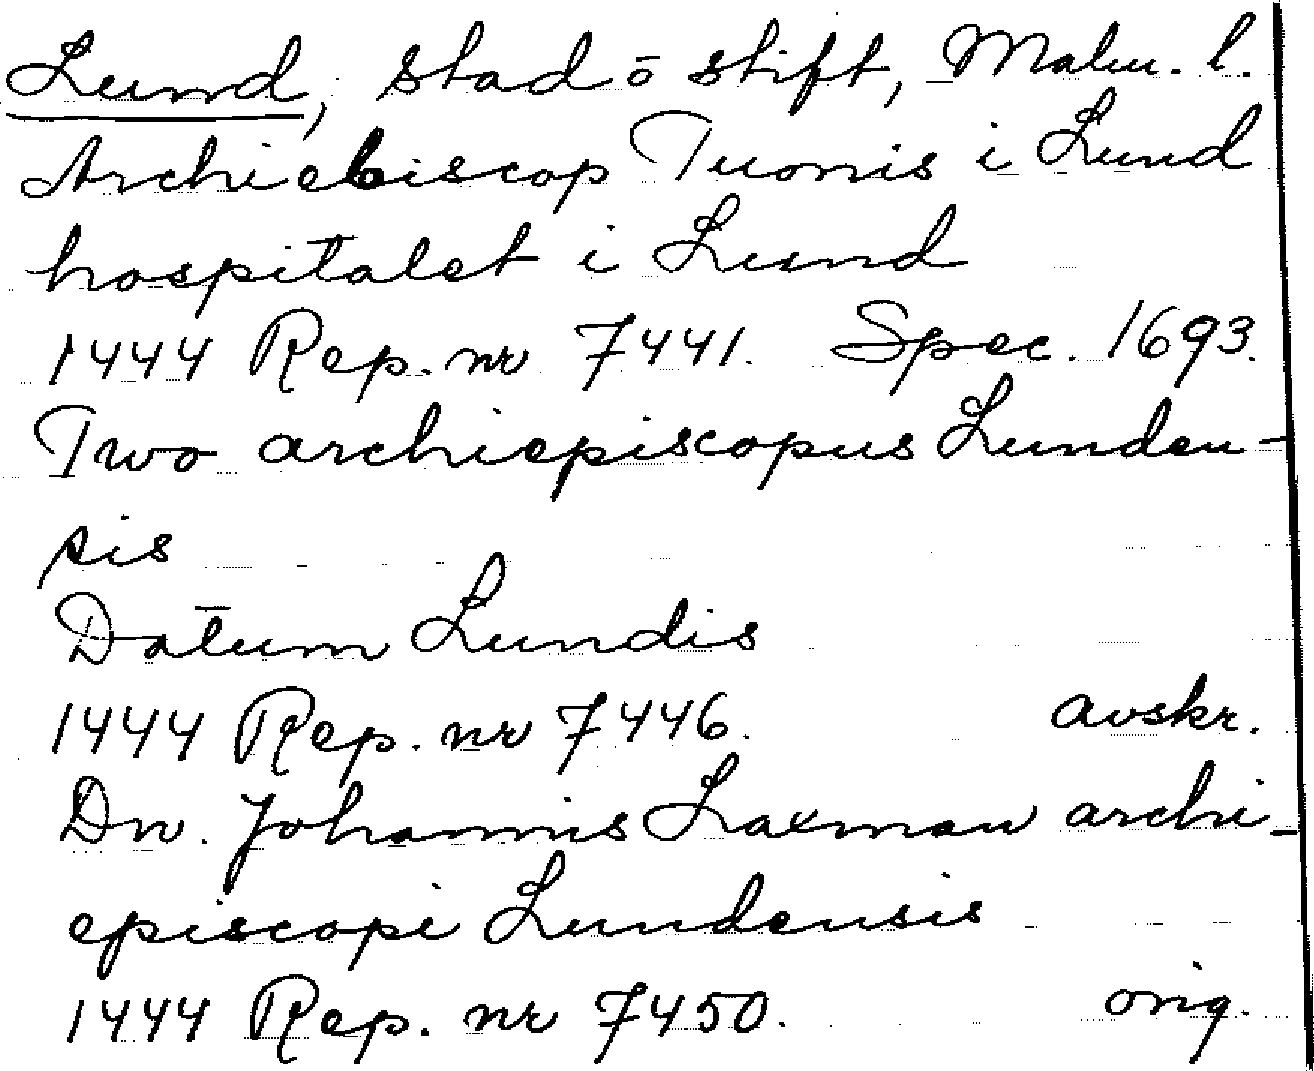 Lund, stad o stift, Malm. l.
Archiebiscop Tuonis i Lund
hospitalet i Lund
1444 Rep. nr 7441. Spec. 1693.
Two archiepiscopus Lunden-
sis
Datum Lundis
1444 Rep. nr 7446. avskr.
Dn. Johannis Laxman archi-
episcopi Lundensis
1444 Rep. nr 7450. orig.